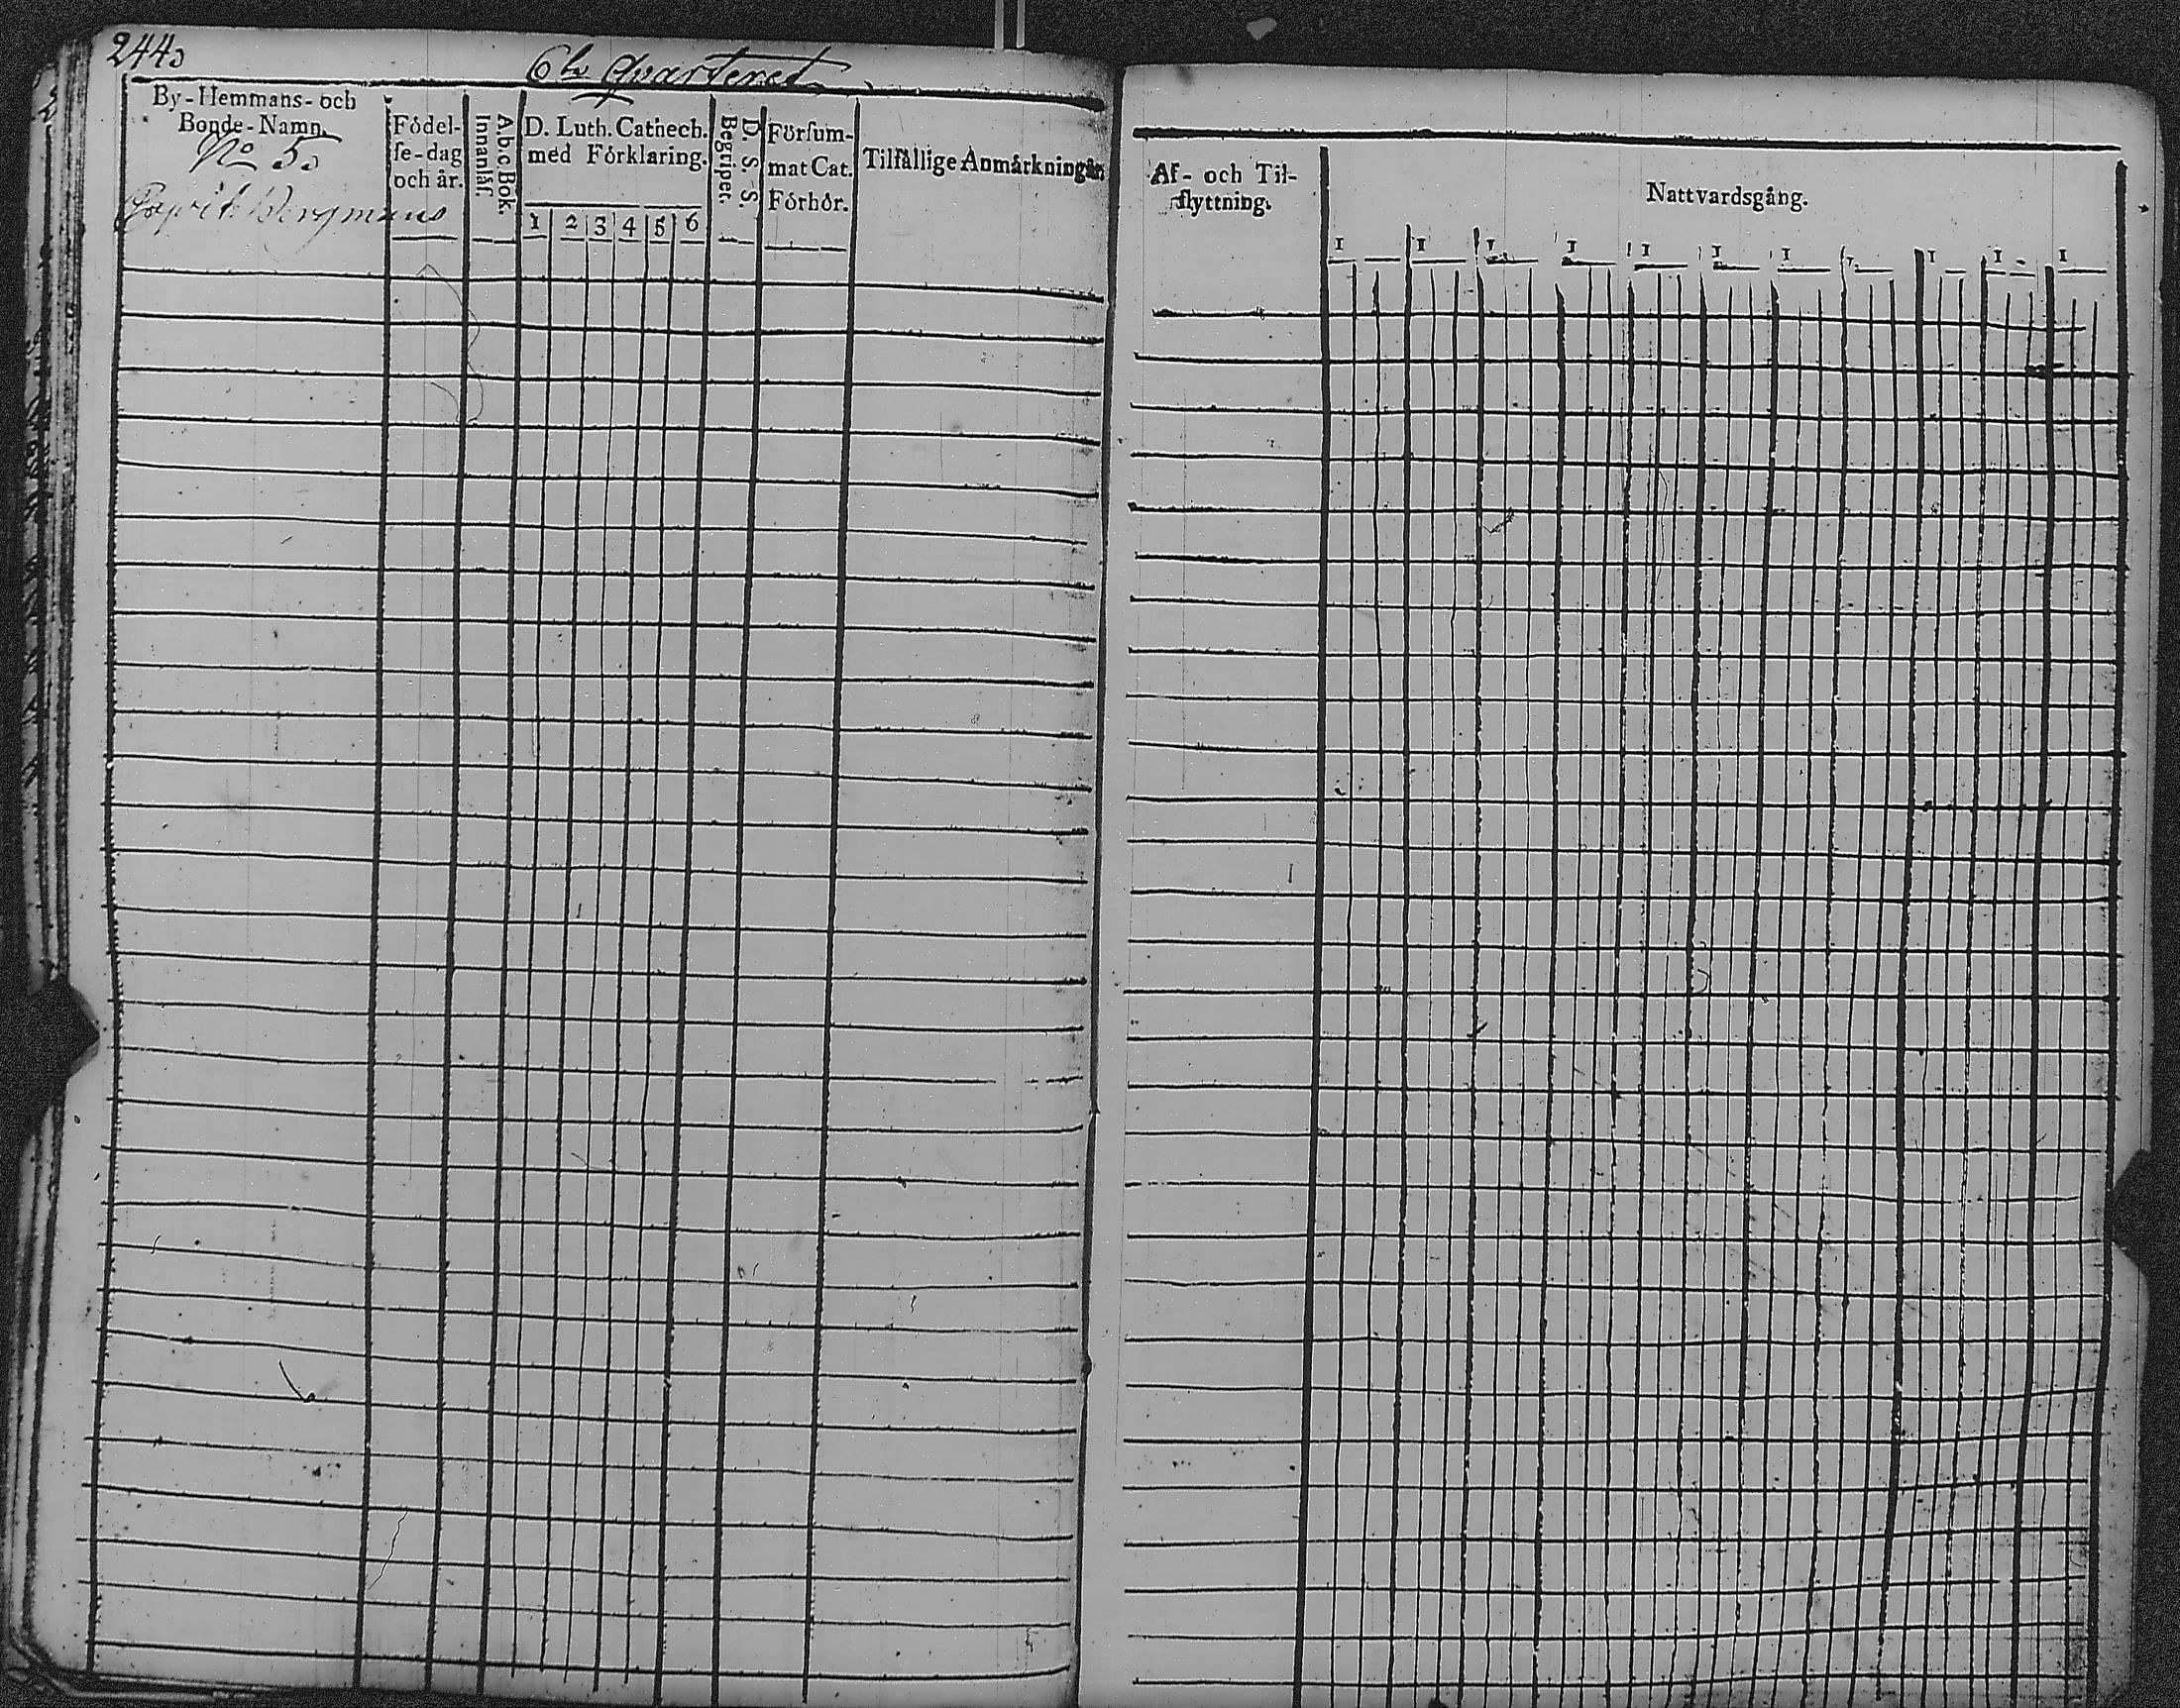 244.
6te Qvarteret
By-Hemmans- och
Bonde-Namn.
No 5.
Capit: Bergmans
Födel-
se-dag
och år.
A b c Bok.
Innantäs.
D. Luth. Cathech.
med Förklaring.
1 2 3 4 5 6
D. S. S.
Begriper.
Försum-
mat Cat.
Förhör.
Tilfällige Anmärkningar.
Af- och Til-
flyttning.
Nattvardsgång.
1 1 1 1 1 1 1 1 1 1 1